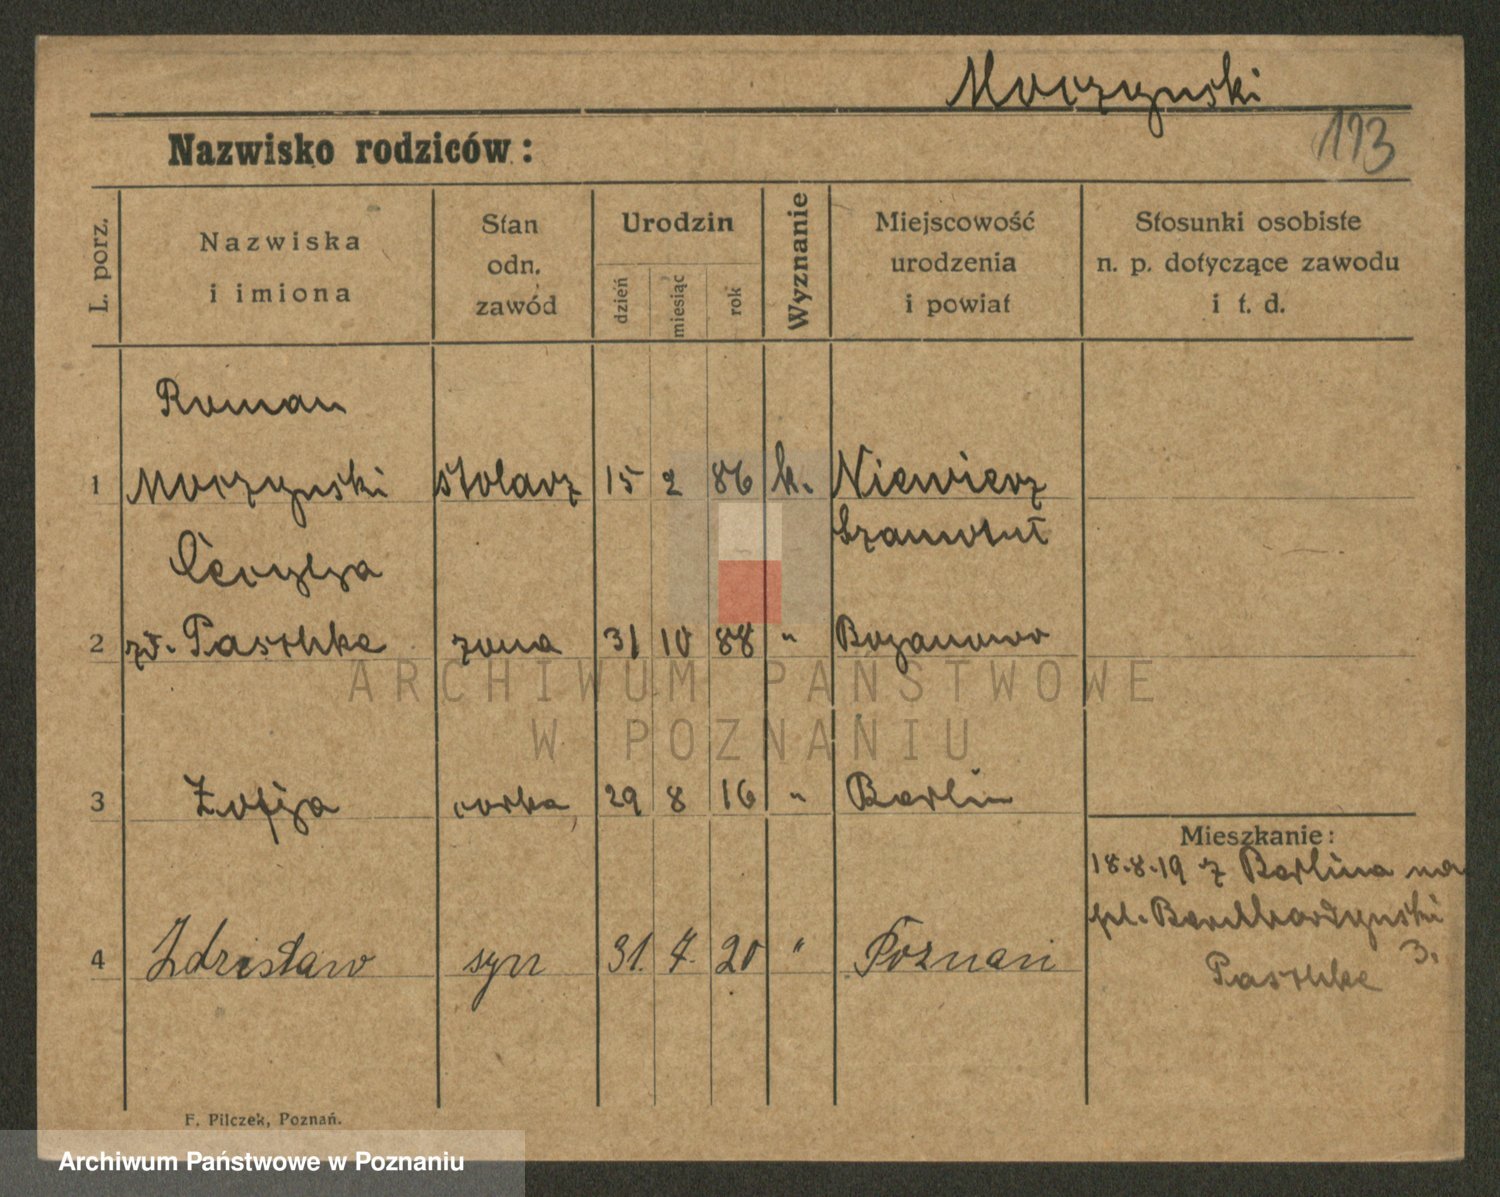 Moczynski
193
Nazwisko rodziców:
L. porz.
Nazwiska
i imiona
Stan
odn.
zawód
Urodzin
dzień
miesiąc
rok
Wyznanie
Miejscowość
urodzenia
i powiat
Stosunki osobiste
n. p. dotyczące zawodu
i t. d.
Roman
1 Moczynski stolarz 15 2 86 k. Niewierz
Szamotuł
2 Paschke zona 31 10 88 " Bozanowo
ARCHIWUM PAŃSTWOWE
W POZNANIU
3 Zofja corka 29 8 16 " Berlin
Mieszkanie:
18.8.19 z Berlina na
pl. Bernhardynski
4 Zdzisław syn 31. 7. 20 " Poznań
3.
Paschke
F. Pilczek, Poznań.
Archiwum Państwowe w Poznaniu